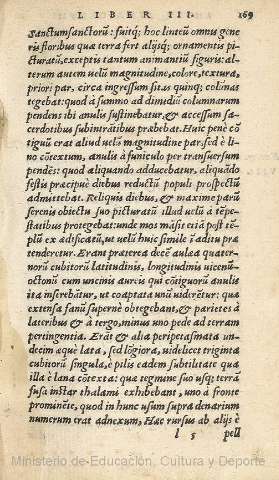 LIBER III. 169
sanctum sanctorũ: fuitq; hoc linteũ omni gene
ris floribus quæ terra fert alijsq; ornamentis pi-
cturatũ, exceptis tantum animantiũ figuris: al-
terum autem velũ magnitudine, colore, textura,
prior: par, circa ingressum sitas quinq; colũnas
tegebat: quod à summo ad dimidiũ columnarum
pendens ibi anulis sustinebatur, & accessum sa-
cerdotibus subintrãtibus præbebat. Huic penè cõ
tiguũ erat aliud velũ magnitudine par, sed è li-
no cõtextum, anulis à funiculo per transuersum
pendẽs: quod aliquando adducebatur, aliquãdo
festis præcipuè diebus reductũ populi prospectũ
admittebat. Reliquis diebus, & maximè parũ
serenis obiectu suo picturatũ illud velũ à tẽpe-
statibus protegebat: unde mos mãsit etiã post tẽ-
plũ ex ædificatũ, ut velũ huic simile ĩ aditu præ
tenderetur. Erant præterea decẽ aulæa quater-
norũ cubitorũ latitudinis, longitudinis vicenũ-
octonũ cum uncinis aureis qui cõtiguorũ anulis
ita inserebãtur, ut coaptata unũ viderẽtur: quæ
extensa fanũ supernè obtegebant, & parietes à
lateribus & à tergo, minus uno pede ad terram
pertingentia. Erãt & alia peripetasmata un-
decim æquè lata, sed lõgiora, videlicet triginta
cubitorũ singula, è pilis eadem subtilitate qua
illa è lana cõtexta: quæ tegmine suo usq; terrã
fusa instar thalami exhibebant, uno à fronte
prominẽte, quod in hunc usum supra denarium
numerum erat adnexum, Hæc rursus ab alijs è
l 5 pell
Ministerio de Educación, Cultura y Deporte